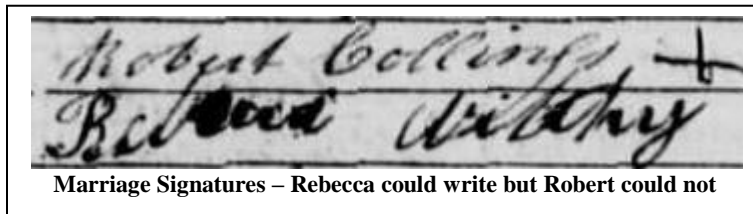 Robert Collings +
Rebecca Withy
Marriage Signatures – Rebecca could write but Robert could not